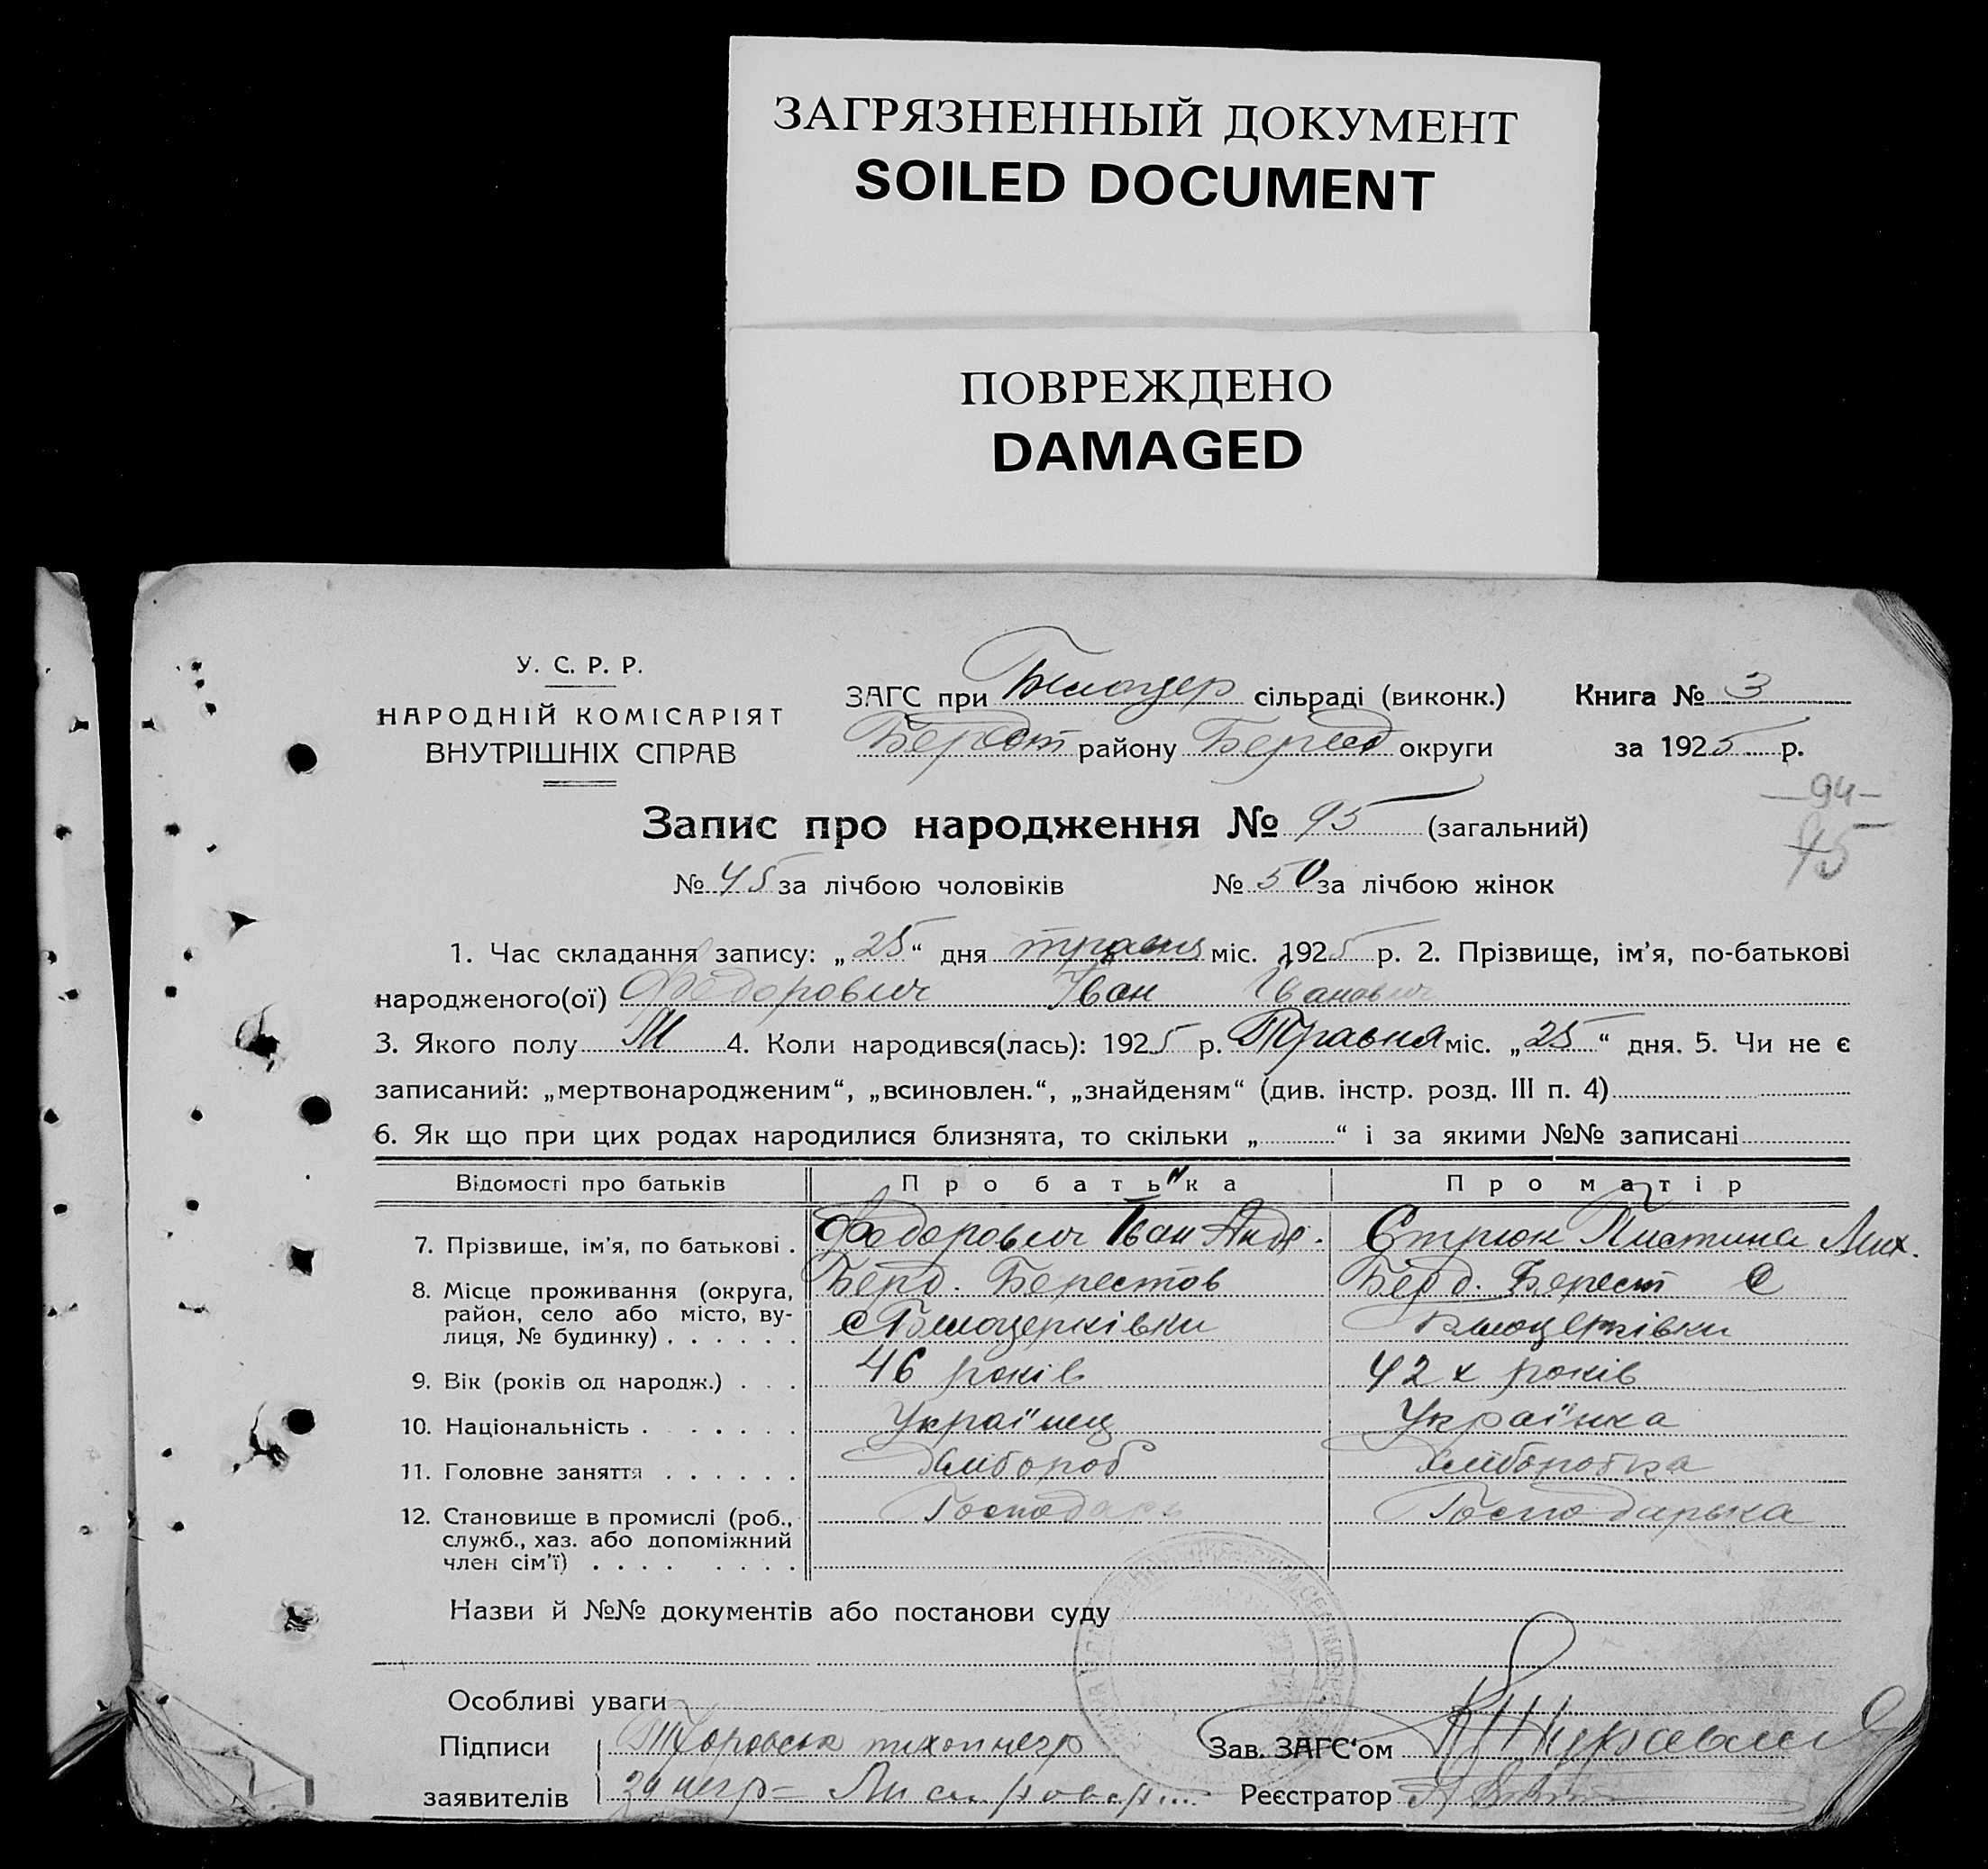 ЗАГРЯЗНЕННЫЙ ДОКУМЕНТ
SOILED DOCUMENT
ПОВРЕЖДЕНО
DAMAGED
У. С. Р. Р.
НАРОДНІЙ КОМІСАРІЯТ
ВНУТРІШНІХ СПРАВ
ЗАГС при Білоцер сільраді (виконк.) Книга № 3
Берест району Берд округи за 1925 р.
—94—
Запис про народження № 95 (загальний)
45
№ 45 за лічбою чоловіків № 50 за лічбою жінок
1. Час складання запису: „25“ дня травня міс. 1925 р. 2. Прізвище, ім’я, по-батькові
народженого(ої) Федорович Іван Іванович
3. Якого полу М 4. Коли народився(лась): 1925 р. Травня міс. „25“ дня. 5. Чи не є
записаний: „мертвонародженим“, „всиновлен.“, „знайденям“ (див. інстр. розд. III п. 4)
6. Як що при цих родах народилися близнята, то скільки „ “ і за якими №№ записані
Відомості про батьків Про батька Про матір
7. Прізвище, ім’я, по батькові . Федорович Іван Андр. Стрюк Пистина Мих.
8. Місце проживання (округа, Берд. Берестов Берд. Берест С
район, село або місто, ву-
лиця, № будинку) . . . . . . с Білоцерківки Білоцерківки
9. Вік (років од народж.) . . . 46 років 42 х років
10. Національність . . . . . . Українец Українка
11. Головне заняття . . . . . . Хлібороб Хлiборобка
12. Становище в промислі (роб., Господарь Господарька
служб., хаз. або допоміжний
член сім’ї) . . . . . . . .
Назви й №№ документів або постанови суду
Особливі уваги
Підписи Зав. ЗАГС‘ом
заявителів Реєстратор